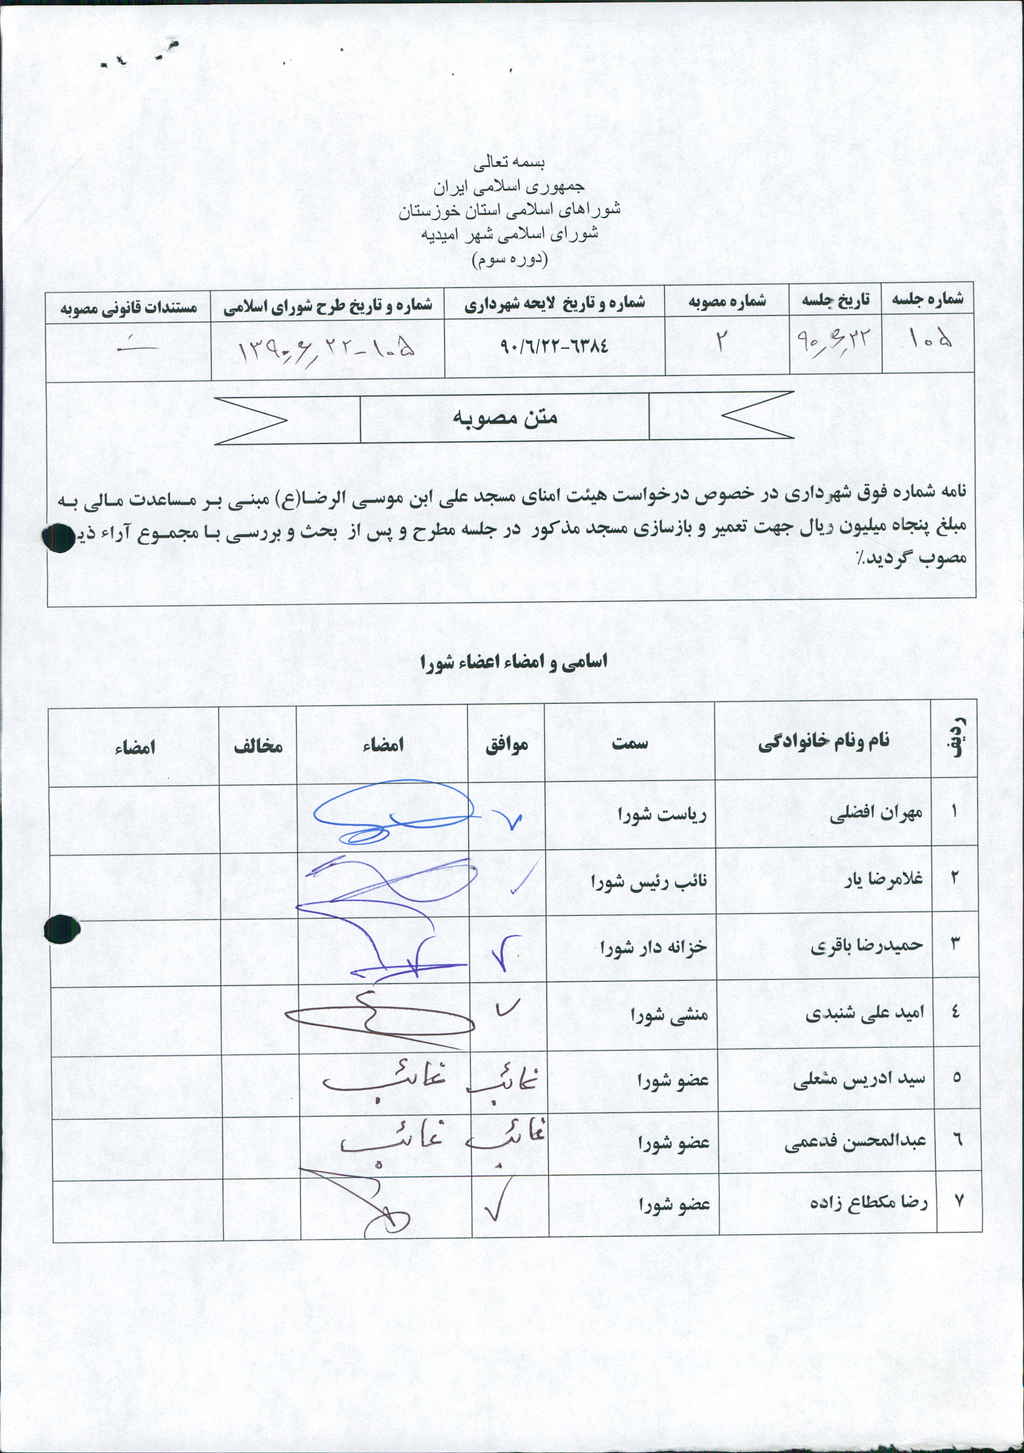 بسمه تعالی
جمهوری اسلامی ایران
شوراهای اسلامی استان خوزستان
شورای اسلامی شهر امیدیه
(دوره سوم)
شماره جلسه تاریخ جلسه شماره مصوبه شماره و تاریخ لایحه شهرداری شماره و تاریخ طرح شورای اسلامی مستندات قانونی مصوبه
۱۰۵ ۹۰٫۶٫۲۲ ۲ ۹۰/۶/۲۲-۶۳۸٤ ۱۳۹۰٫۶٫۲۲-۱۰۵
متن مصوبه
نامه شماره فوق شهرداری در خصوص درخواست هیئت امنای مسجد علی ابن موسی الرضا(ع) مبنی بر مساعدت مالی به
مبلغ پنجاه میلیون ریال جهت تعمیر و بازسازی مسجد مذکور در جلسه مطرح و پس از بحث و بررسی با مجموع آراء
مصوب گردید٪
اسامی و امضاء اعضاء شورا
ردیف نام ونام خانوادگی سمت موافق امضاء مخالف امضاء
۱ مهران افضلی ریاست شورا ✓
۲ غلامرضا یار نائب رئیس شورا ✓
۳ حمیدرضا باقری خزانه دار شورا ✓
٤ امید علی شنبدی منشی شورا ✓
۵ سید ادریس مشعلی عضو شورا غائب غائب
٦ عبدالمحسن فدعمی عضو شورا غائب غائب
۷ رضا مکطاع زاده عضو شورا ✓